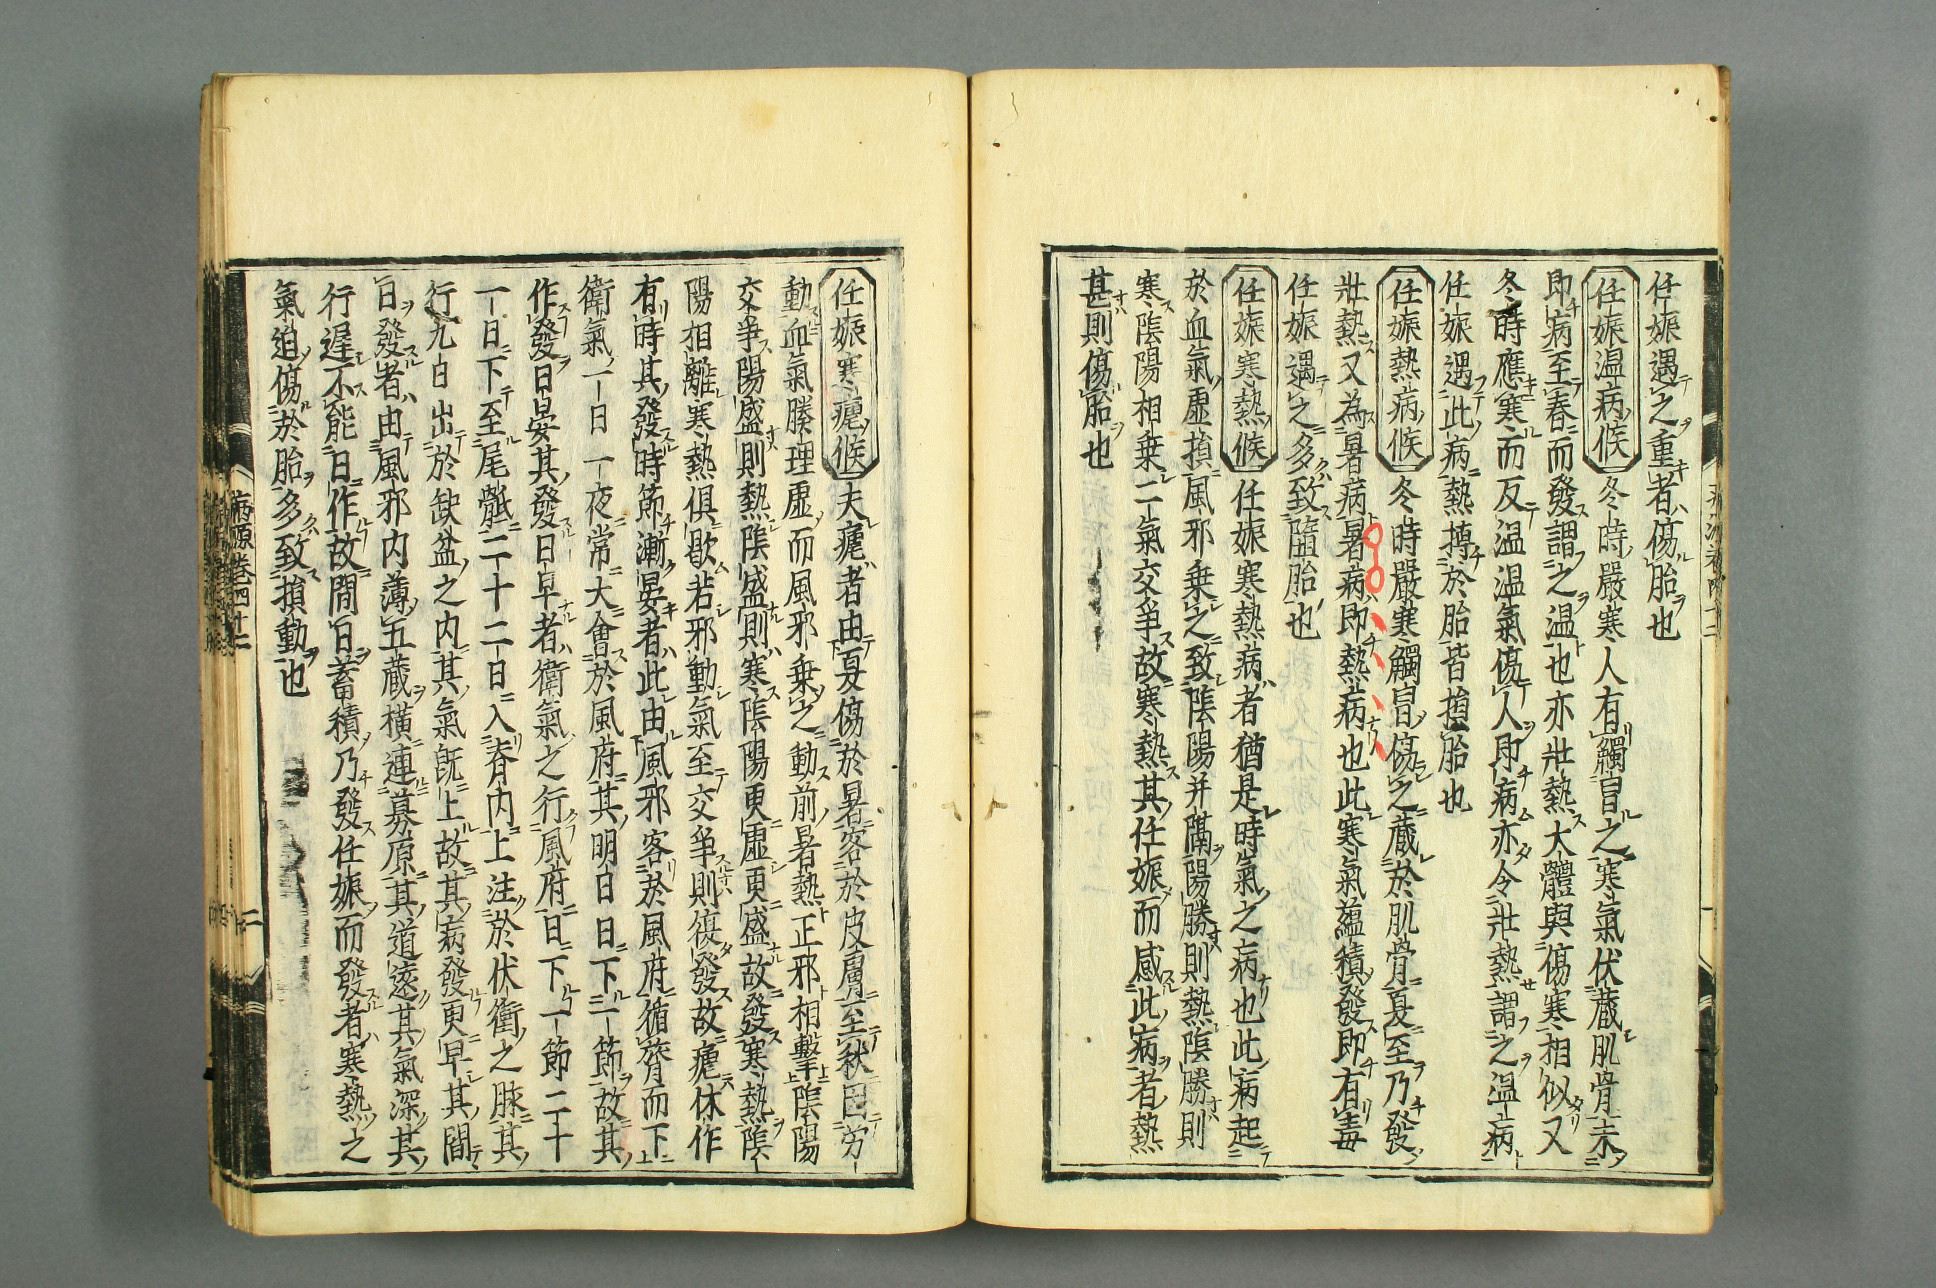 任娠遇之重者傷胎也
任娠温病候冬時嚴寒人有觸冒之寒氣伏蔵肌骨未
即病至春而發謂之温也亦壮熱大體與傷寒相似又
冬時應寒而反温温氣傷人即病亦令壮熱謂之温病
任娠遇此病熱搏於胎皆損胎也
任娠熱病候冬時嚴寒觸冒傷之蔵於肌骨夏至乃發
壮熱又為暑病暑病即熱病也此寒氣蘊積發即有毒
任娠遇之多致墮胎也
任娠寒熱候任娠寒熱病者猶是時氣之病也此病起
於血氣虚損風邪乗之致陰陽并隔陽勝則熱陰勝則
寒陰陽相乗二氣交爭故寒熱其任娠而感此病者熱
甚則傷胎也
任娠寒瘧候夫瘧者由夏傷於暑客於皮膚至秋因労
動血氣腠理虚而風邪乗之動前暑熱正邪相擊陰陽
交爭陽盛則熱陰盛則寒陰陽更虚更盛故發寒熱陰
陽相離寒熱俱歇若邪動氣至交爭則復發故瘧休作
有時其發時節漸晏者此由風邪客於風府循膂而下
衛氣一日一夜常大會於風府其明日日下一節故其
作發日晏其發日早者衛氣之行風府日下一節二十
一日下至尾骶二十二日入脊内上注於伏衝之脉其
行九日出於缺盆之内其氣既上故其病發更早其間
日發者由風邪内薄五蔵横連募原其道遠其氣深其
行遅不能日作故間日蓄積乃發任娠而發者寒熱之
氣迫傷於胎多致損動也
病原巻四十二
二